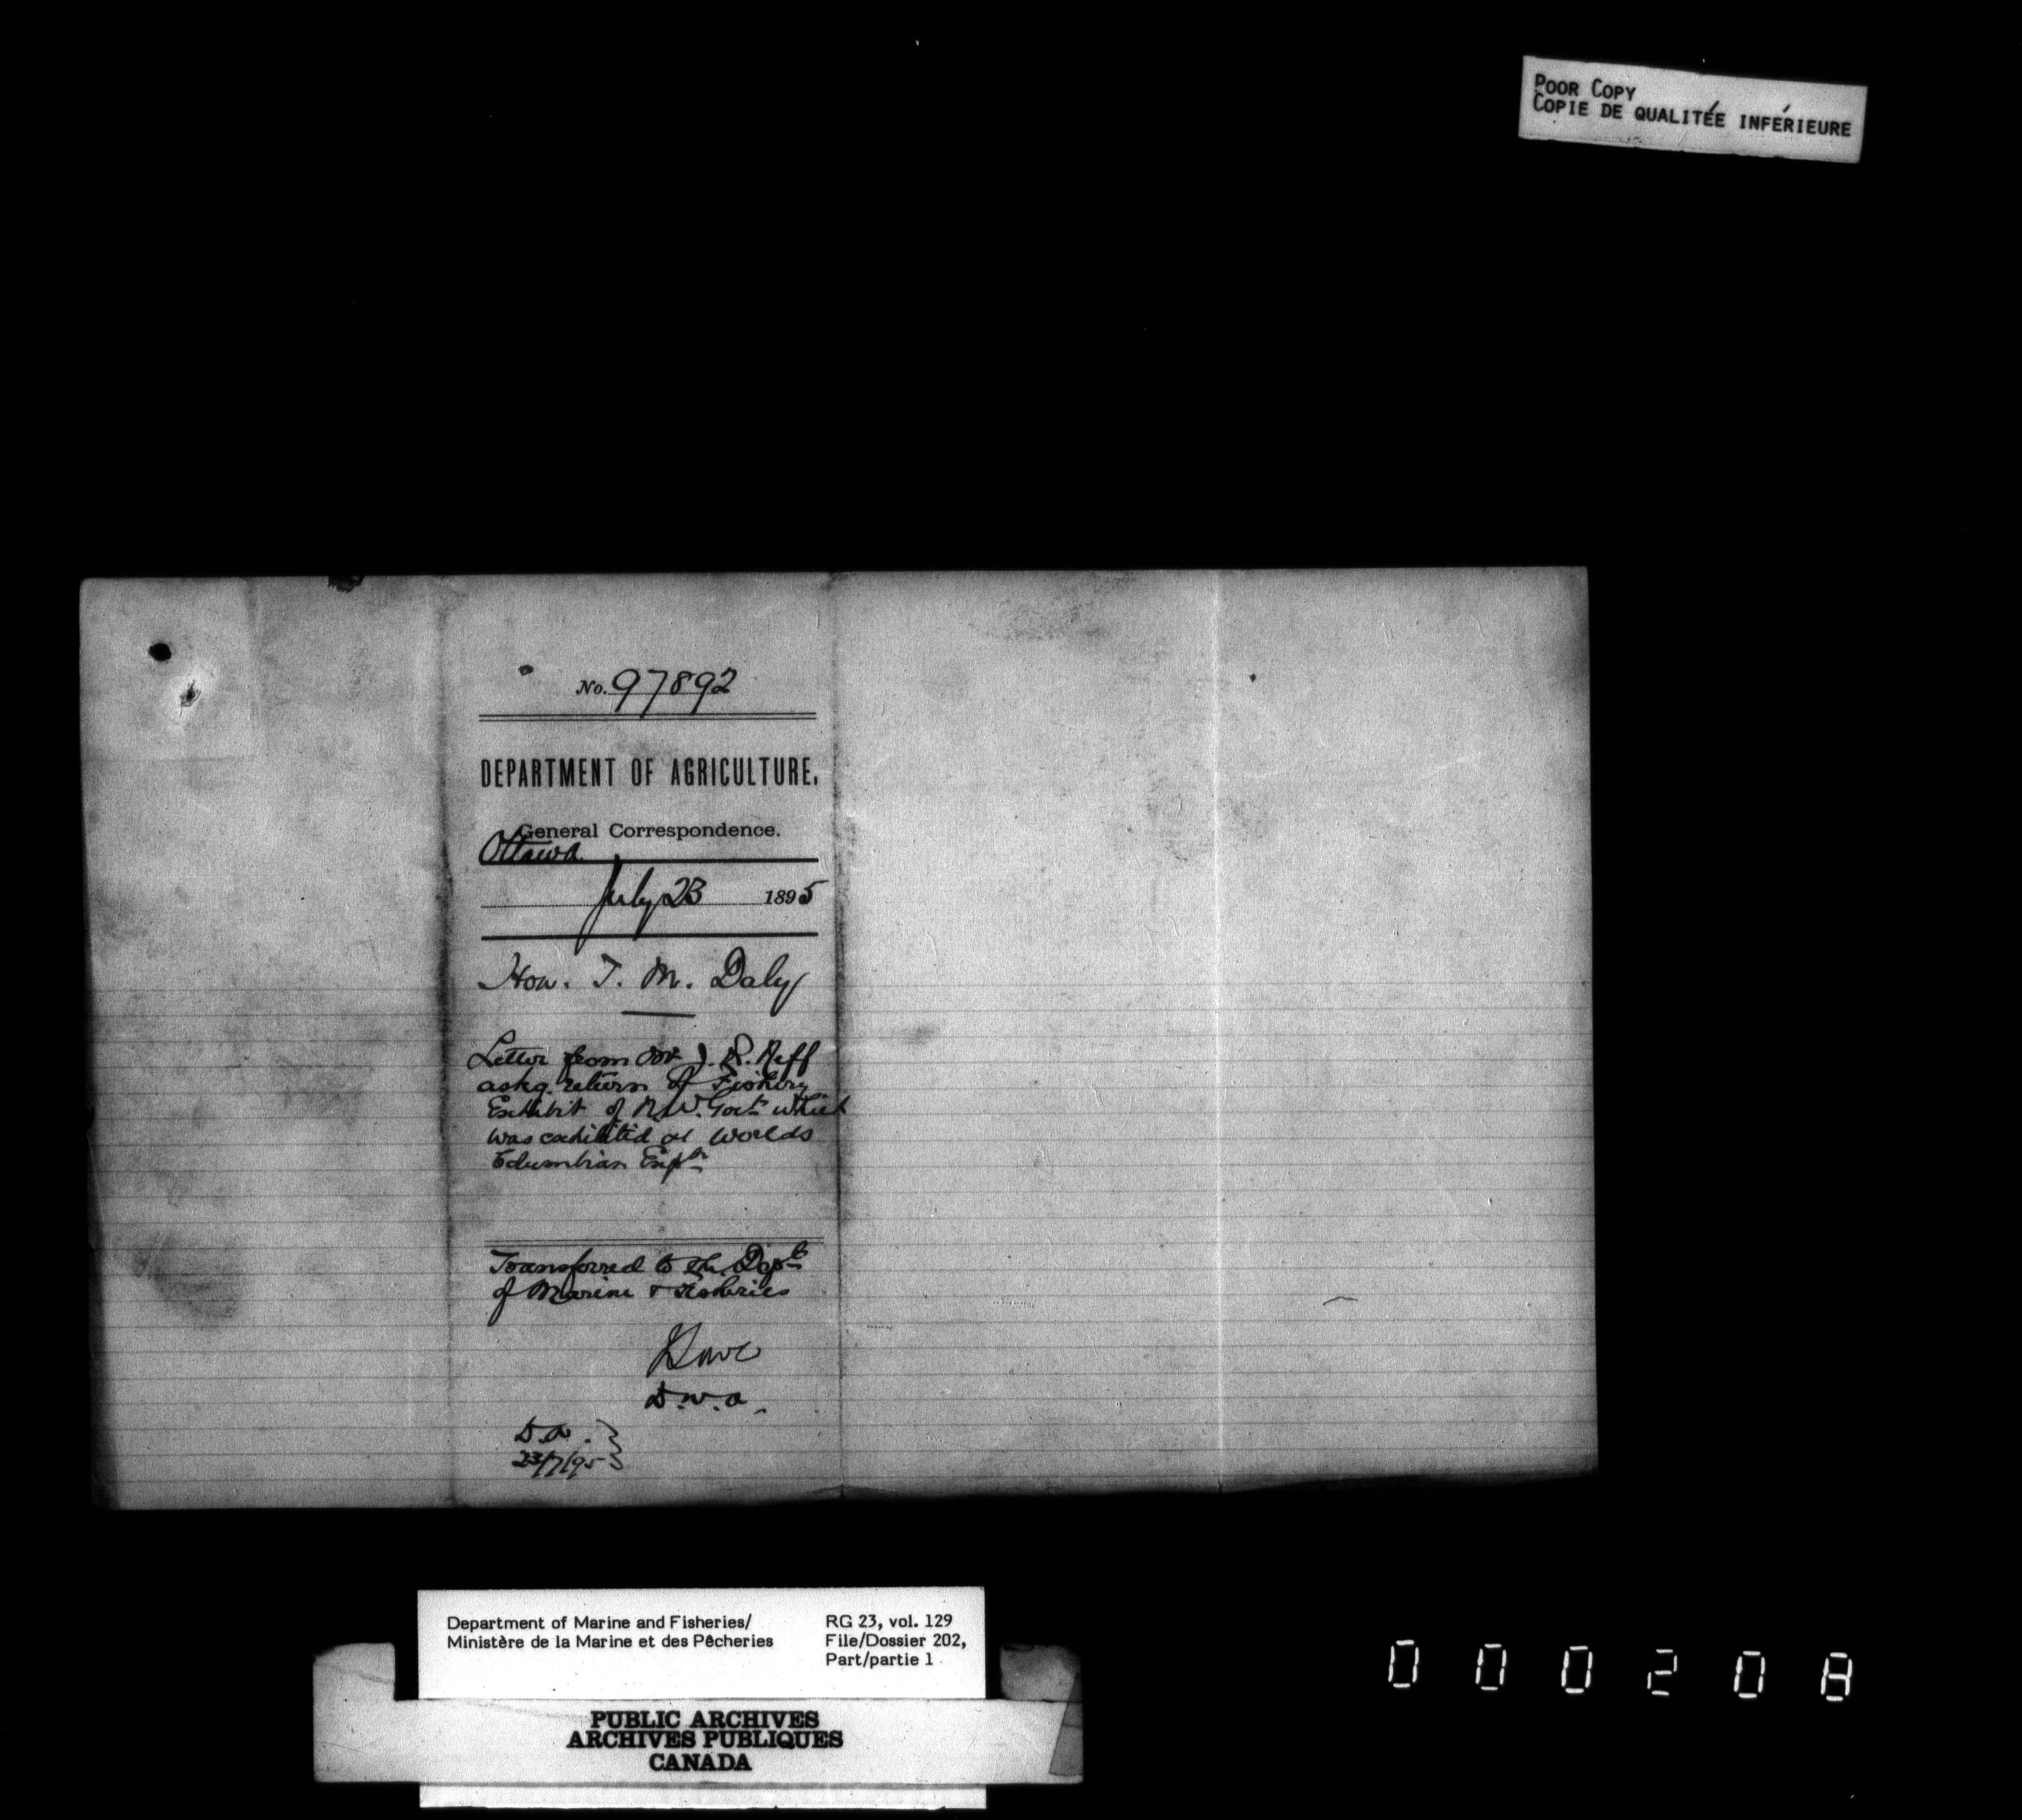 POOR COPY
COPIE DE QUALITÉE INFÉRIEURE
No. 97892
DEPARTMENT OF AGRICULTURE.
General Correspondence.
Ottawa
July 23 1895
Hon. T. M. Daly
Letter from Mr J. R. Neff
askg. return of Fishery
Exhibit of N.W. Govt which
was exhibited at Worlds
Columbian Expn
Transferred to the Dept
of Marine & Fisheries
D.W.A.
D.A.
23/7/95
Department of Marine and Fisheries/
Ministère de la Marine et des Pêcheries
RG 23, vol. 129
File/Dossier 202,
Part/partie 1
PUBLIC ARCHIVES
ARCHIVES PUBLIQUES
CANADA
000208